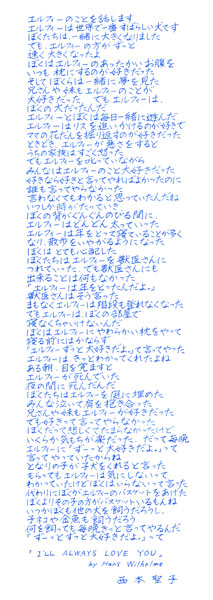 エルフィーのことを話します
エルフィーは世界で一番すばらしい犬です
ぼくたちは一緒に大きくなりました
でも、エルフィーの方がずっと
速く大きくなったよ
ぼくはエルフィーのあったかいお腹を
いつも枕にするのが好きだった
そしてぼくらは一緒に夢を見た
兄さんや妹もエルフィーのことが
大好きだった でもエルフィーは、
ぼくの犬だったんだ
エルフィーとぼくは毎日一緒に遊んだ
エルフィーはリスを追いかけるのが好きで
ママの花だんを掘り返すのが好きだった
ときどき、エルフィーが悪さをすると
うちの家族はすごく怒った
でもエルフィーを叱っていながら
みんなはエルフィーのこと大好きだった
好きなら好きと言ってやればよかったのに
誰も言ってやらなかった
言わなくてもわかると思っていたんだね
いつしか時がたっていき
ぼくの背がぐんぐんのびる間に、
エルフィーはどんどん太っていった
エルフィーは年をとって寝ていることが多く
なり、散歩をいやがるようになった
ぼくはとても心配した
ぼくたちはエルフィーを獣医さんに
つれていった、でも獣医さんにも
出来ることは何もなかった
「エルフィーは年をとったんだよ。」
獣医さんはそう言った
まもなくエルフィーは階段も登れなくなった
でもエルフィーは、ぼくの部屋で
寝なくちゃいけないんだ
ぼくはエルフィーにやわらかい枕をやって
寝る前にはかならず
「エルフィーずっと大好きだよ。」って言ってやった
エルフィーはきっとわかってくれたよね
ある朝、目を覚ますと
エルフィーが死んでいた
夜の間に死んだんだ
ぼくたちはエルフィーを庭に埋めた
みんな泣いて肩を抱き合った
兄さんや妹もエルフィーが好きだった
でも好きって言ってやらなかった
ぼくだって悲しくてたまらなかったけど
いくらか気もちが楽だった だって毎晩
エルフィーに「ずーっと大好きだよ。」って
言ってやっていたからね
となりの子が子犬をくれると言った
もらってもエルフィーは気にしないって
わかっていたけどぼくはいらないって言った
代わりにぼくがエルフィーのバスケットをあげた
ぼくよりその子の方がバスケットいるもんね
いつかぼくも他の犬を飼うだろうし、
子ネコや金魚も飼うだろう
何を飼っても毎晩きっと言ってやるんだ
「ずーっとずっと大好きだよ。」って
「I'LL ALWAYS LOVE YOU」
by Hans Wilhelme
西本聖子